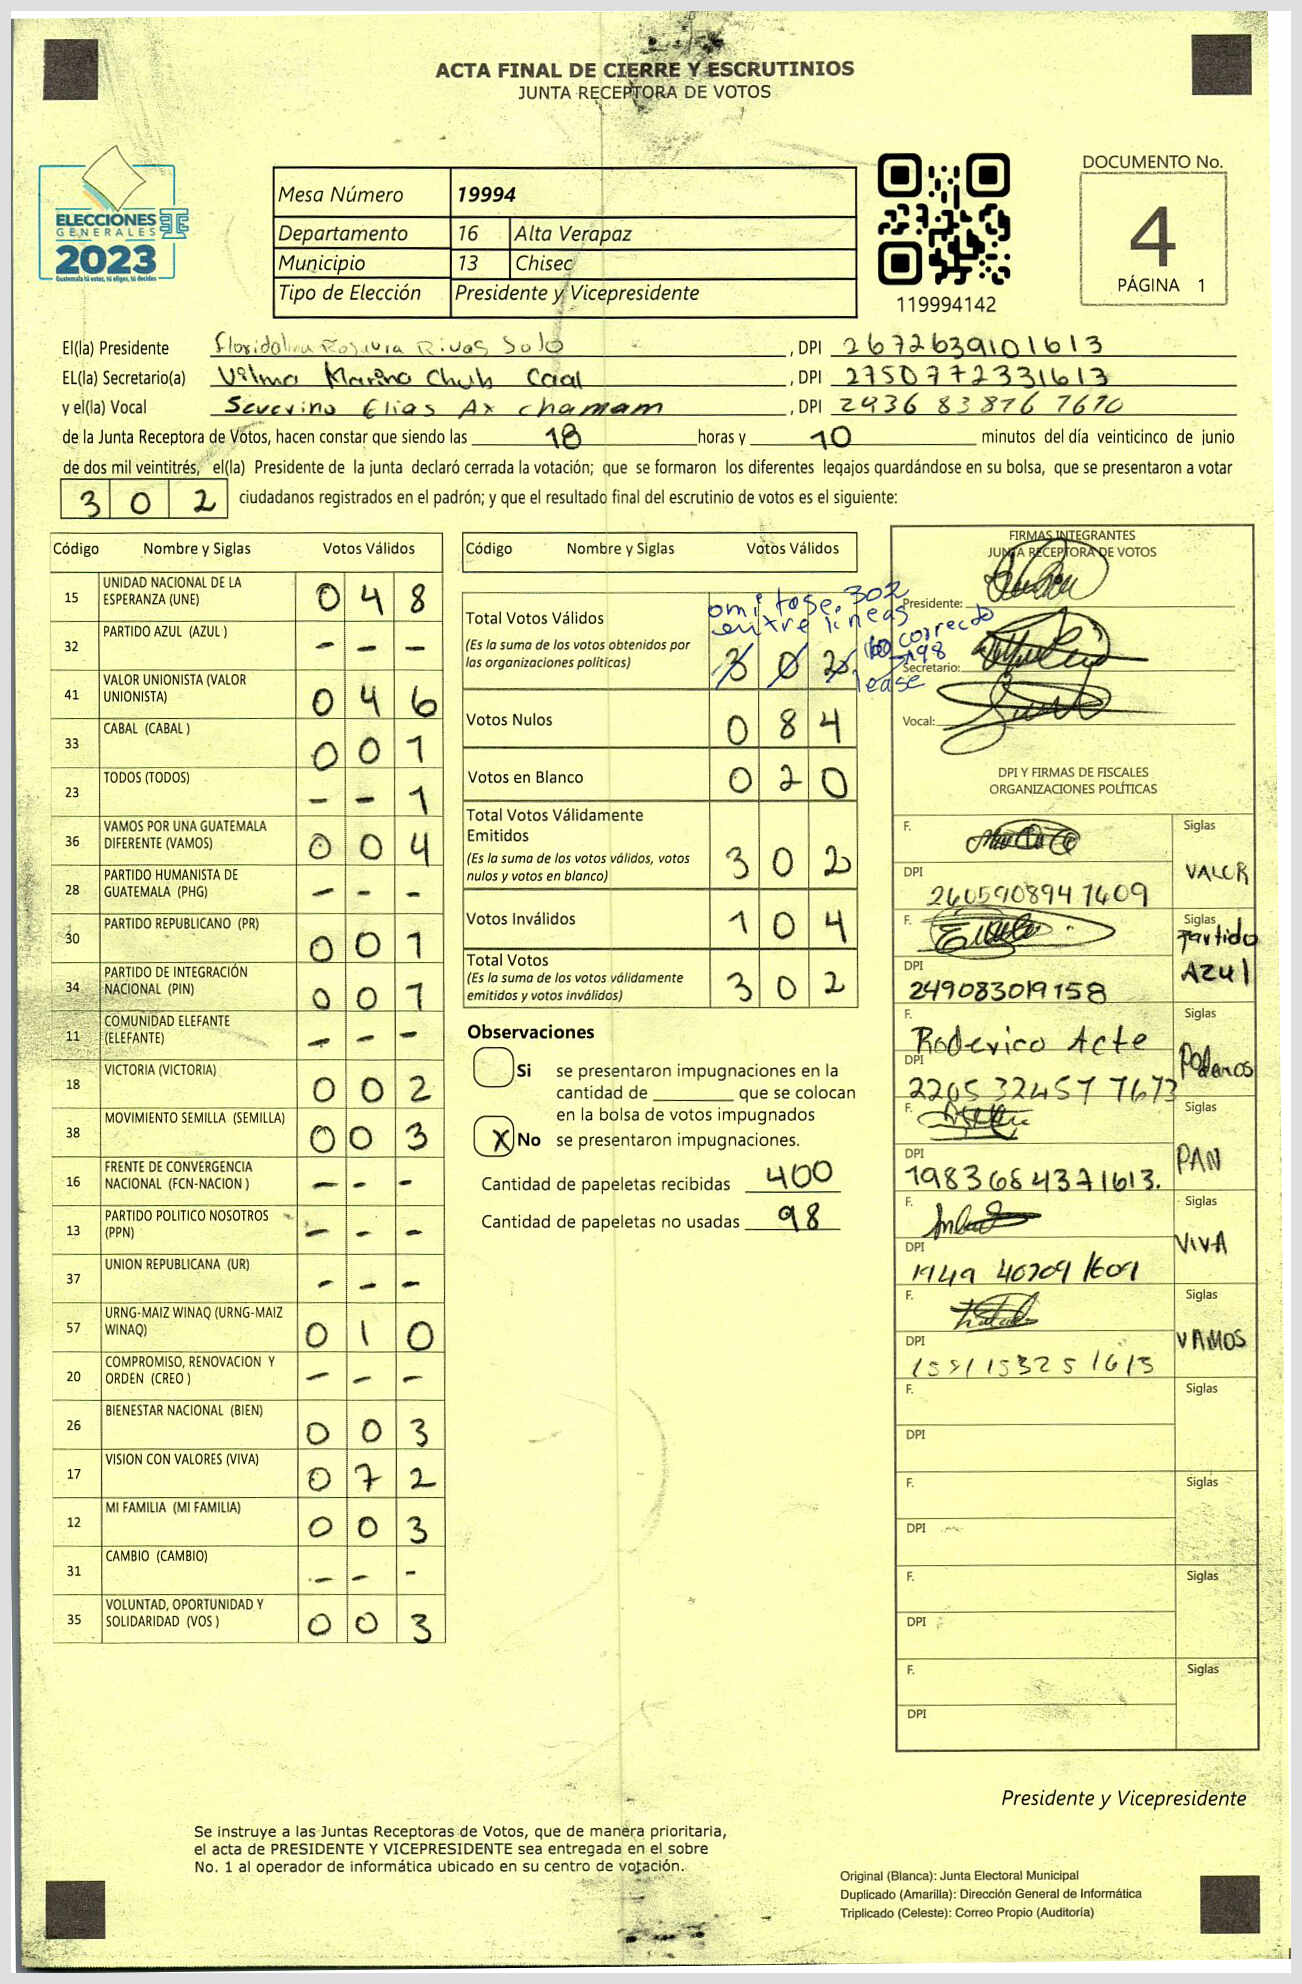 ACTA FINAL DE CIERRE Y ESCRUTINIOS
JUNTA RECEPTORA DE VOTOS
ELECCIONES
GENERALES
2023
Guatemala tú votas, tú eliges, tú decides
Mesa Número 19994
Departamento 16 Alta Verapaz
Municipio 13 Chisec
Tipo de Elección Presidente y Vicepresidente
119994142
DOCUMENTO No.
4
PÁGINA 1
El(la) Presidente Floridalma Rosaura Rivas Solo, DPI 2672639101613
EL(la) Secretario(a) Vilma Marina Chub Caal, DPI 2750772331613
y el(la) Vocal Severino Elias Ax chamam, DPI 2936 83876 1610
de la Junta Receptora de Votos, hacen constar que siendo las 18 horas y 10 minutos del día veinticinco de junio
de dos mil veintitrés, el(la) Presidente de la junta declaró cerrada la votación; que se formaron los diferentes legajos quardándose en su bolsa, que se presentaron a votar
302 ciudadanos registrados en el padrón; y que el resultado final del escrutinio de votos es el siguiente:
Código Nombre y Siglas Votos Válidos
15 UNIDAD NACIONAL DE LA ESPERANZA (UNE) 0 4 8
32 PARTIDO AZUL (AZUL ) - - -
41 VALOR UNIONISTA (VALOR UNIONISTA) 0 4 6
33 CABAL (CABAL ) 0 0 1
23 TODOS (TODOS) - - 1
36 VAMOS POR UNA GUATEMALA DIFERENTE (VAMOS) 0 0 4
28 PARTIDO HUMANISTA DE GUATEMALA (PHG) - - -
30 PARTIDO REPUBLICANO (PR) 0 0 1
34 PARTIDO DE INTEGRACIÓN NACIONAL (PIN) 0 0 1
11 COMUNIDAD ELEFANTE (ELEFANTE) - - -
18 VICTORIA (VICTORIA) 0 0 2
38 MOVIMIENTO SEMILLA (SEMILLA) 0 0 3
16 FRENTE DE CONVERGENCIA NACIONAL (FCN-NACION ) - - -
13 PARTIDO POLITICO NOSOTROS (PPN) - - -
37 UNION REPUBLICANA (UR) - - -
57 URNG-MAIZ WINAQ (URNG-MAIZ WINAQ) 0 1 0
20 COMPROMISO, RENOVACION Y ORDEN (CREO ) - - -
26 BIENESTAR NACIONAL (BIEN) 0 0 3
17 VISION CON VALORES (VIVA) 0 7 2
12 MI FAMILIA (MI FAMILIA) 0 0 3
31 CAMBIO (CAMBIO) - - -
35 VOLUNTAD, OPORTUNIDAD Y SOLIDARIDAD (VOS ) 0 0 3
Código Nombre y Siglas Votos Válidos
Total Votos Válidos
(Es la suma de los votos obtenidos por
las organizaciones políticas)
3 0 2
omitase. 302
entre lineas
lo correcto
198
lease
Votos Nulos 0 8 4
Votos en Blanco 0 2 0
Total Votos Válidamente
Emitidos
(Es la suma de los votos válidos, votos
nulos y votos en blanco)
3 0 2
Votos Inválidos 1 0 4
Total Votos
(Es la suma de los votos válidamente
emitidos y votos inválidos)
3 0 2
Observaciones
Si se presentaron impugnaciones en la
cantidad de ________ que se colocan
en la bolsa de votos impugnados
X No se presentaron impugnaciones.
Cantidad de papeletas recibidas 400
Cantidad de papeletas no usadas 98
FIRMAS INTEGRANTES
JUNTA RECEPTORA DE VOTOS
Presidente:
Secretario:
Vocal:
DPI Y FIRMAS DE FISCALES
ORGANIZACIONES POLÍTICAS
F. Siglas
VALOR
DPI 2605908941609
F. Siglas
Partido
Azul
DPI 249083019158
F. Roderico Acte Siglas
Podemos
DPI 2205 32457 1673
F. Siglas
PAN
DPI 1983684371613.
F. Siglas
VIVA
DPI 1949 40709 1609
F. Siglas
VAMOS
DPI
F. Siglas
DPI
F. Siglas
DPI
F. Siglas
DPI
F. Siglas
DPI
Presidente y Vicepresidente
Se instruye a las Juntas Receptoras de Votos, que de manera prioritaria,
el acta de PRESIDENTE Y VICEPRESIDENTE sea entregada en el sobre
No. 1 al operador de informática ubicado en su centro de votación.
Original (Blanca): Junta Electoral Municipal
Duplicado (Amarilla): Dirección General de Informática
Triplicado (Celeste): Correo Propio (Auditoría)